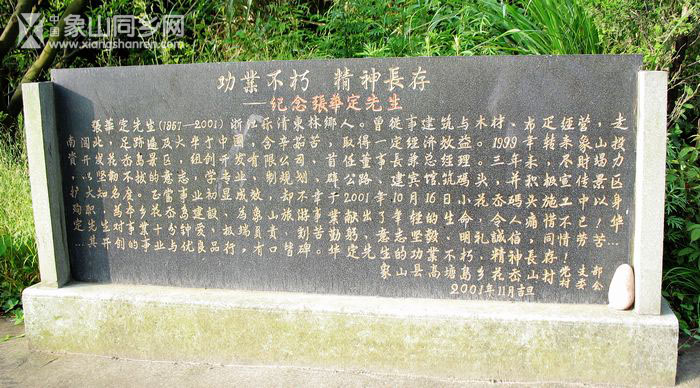 中国象山同乡网
www.xiangshanren.com
功業不朽 精神長存
—纪念張華定先生
張華定先生(1957—2001)浙江乐清東林鄉人。曾從事建筑与木材、布疋经营,走
南闯北,足跡遍及大半个中国,含辛茹苦,取得一定经济效益。1999年转来象山投
資开发花岙島景区,组创开发有限公司,首任董事長兼总经理。三年未,尽财竭力
,以坚韧不拔的意志,学专业,制规划,辟公路,建宾馆,筑码头,并积极宣传景区
扩大知名度。正當事业初显成效,却不幸于2001年10月16日在花岙施工中以身
殉职,為本乡花岙島建設,為象山旅游事業献出了年轻的生命,令人痛惜不已!華
定先生对事業十分钟爱,
其开创的事业与优良品行,有口皆碑。华定先生的功業不朽,精神長存!
象山县高塘島乡花岙山村党支部
村委会
2001年11月吉旦